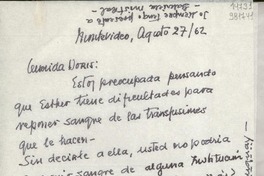 Yo siempre tengo presente a
- Gabriela Mistral -
Montevideo, Agosto 27/62
Querida Doris:
Estoy preocupada pensando
que Esther tiene dificultades para
reponer sangre de las transfusiones
que le hacen -
Sin decirle a ella, usted no podría
sangre de alguna Institución